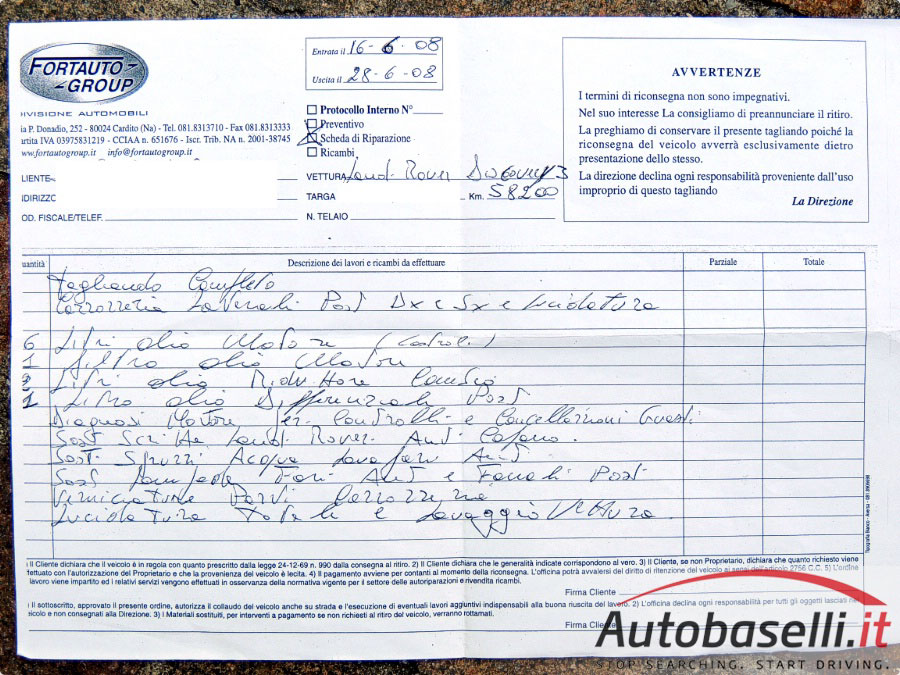 FORTAUTO
GROUP
IVISIONE AUTOMOBILI
ia P. Donadio, 252 - 80024 Cardito (Na) - Tel. 081.8313710 - Fax 081.8313333
artita IVA 03975831219 - CCIAA n. 651676 - Iscr. Trib. NA n. 2001-38745
www.fortautogroup.it info@fortautogroup.it
LIENTE
IDIRIZZO
OD. FISCALE/TELEF.
Entrata il 16-6-08
Uscita il 28-6-08
Protocollo Interno N°
Preventivo
Scheda di Riparazione
Ricambi
VETTURA Land Rover Discovery 3
TARGA Km. 58200
N. TELAIO
AVVERTENZE
I termini di riconsegna non sono impegnativi.
Nel suo interesse La consigliamo di preannunciare il ritiro.
La preghiamo di conservare il presente tagliando poiché la
riconsegna del veicolo avverrà esclusivamente dietro
presentazione dello stesso.
La direzione declina ogni responsabilità proveniente dall'uso
improprio di questo tagliando
La Direzione
uantità Descrizione dei lavori e ricambi da effettuare Parziale Totale
Tagliando Completo
Carrozzeria Laterali Post Dx e Sx e Lucidatura
6 Litri olio Motore (Castrol)
1 Filtro olio Motore
Litri olio Riduttore Cambio
1 Litro olio Differenziale Post
Diagnosi Motore per Controlli e Cancellazioni Guasti
Sost Scritte Land Rover Ant Cofano.
Sost Spruzzi Acqua Lavafari Ant
Sost Lampade Fari Ant e Fanali Post
Verniciature Parti Carrozzeria
Lucidatura Totale e Lavaggio Vettura
) Il Cliente dichiara che il veicolo è in regola con quanto prescritto dalla legge 24-12-69 n. 990 dalla consegna al ritiro. 2) Il Cliente dichiara che le generalità indicate corrispondono al vero. 3) Il Cliente, se non Proprietario, dichiara che quanto richiesto viene
ffettuato con l'autorizzazione del Proprietario e che la provenienza del veicolo è lecita. 4) Il pagamento avviene per contanti al momento della riconsegna. L'officina potrà avvalersi del diritto di ritenzione del veicolo ai sensi dell'articolo 2756 C.C. 5) L'ordine
lavoro viene impartito ed i relativi servizi vengono effettuati in osservanza della normativa vigente per il settore delle autoriparazioni e rivendita ricambi.
Firma Cliente
) Il sottoscritto, approvato il presente ordine, autorizza il collaudo del veicolo anche su strada e l'esecuzione di eventuali lavori aggiuntivi indispensabili alla buona riuscita del lavoro. 2) L'officina declina ogni responsabilità per tutti gli oggetti lasciati
icolo e non consegnati alla Direzione. 3) I Materiali sostituiti, per interventi a pagamento se non richiesti al ritiro del veicolo, verranno rottamati.
Firma Cliente
Autobaselli.it
STOP SEARCHING. START DRIVING.